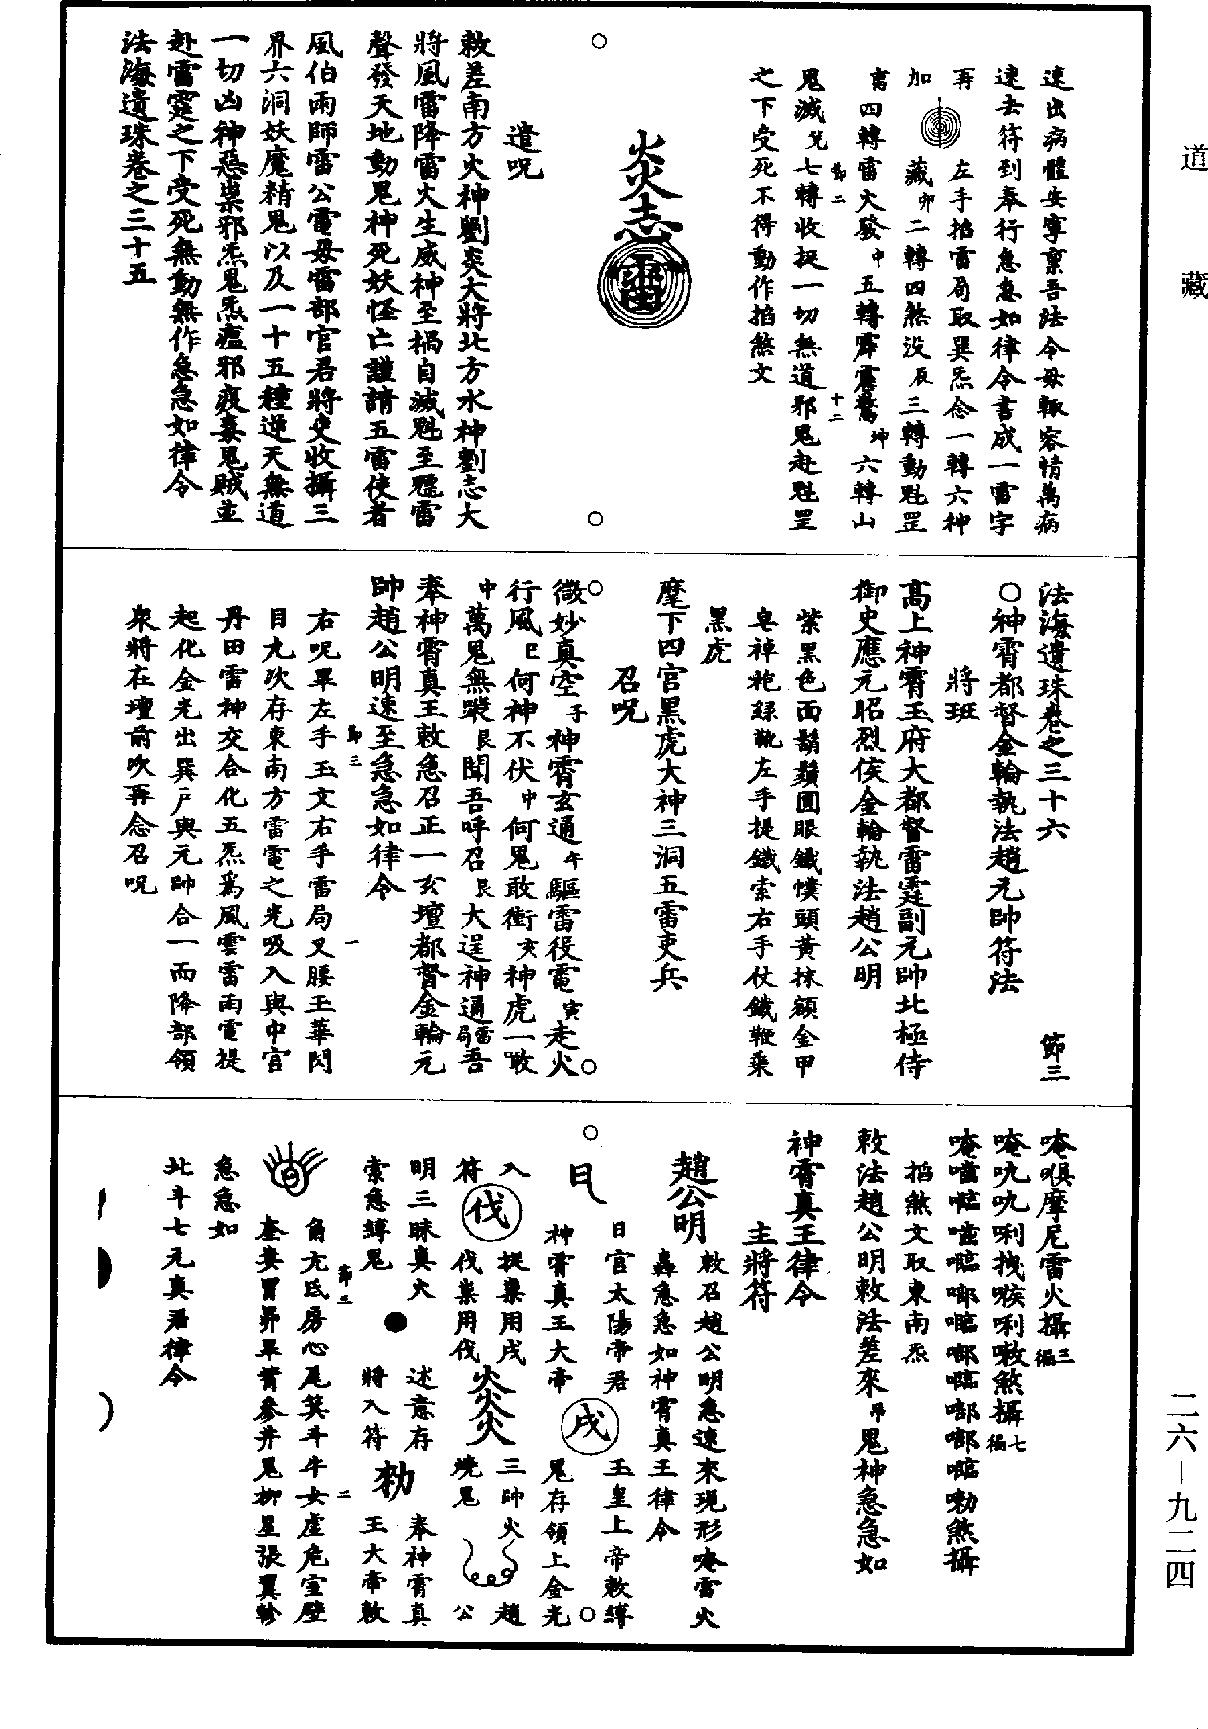 道藏
速出病體安寧稟吾法令毋輙容情萬病
速去符到奉行急急如律令書成一雷字
再 左手掐雷局取巽炁念一轉六神
加 藏卯二轉四煞没辰三轉動魁罡
書四轉雷火發中五轉霹靂驚坤六轉山
節二 十二
鬼滅兌七轉收捉一切無道邪鬼赴魁罡
之下受死不得動作掐煞文
炎志
遣呪
敕差南方火神劉炎大將北方水神劉志大
將風雷降雷火生威神至禍自滅魁至魒雷
聲發天地動鬼神死妖怪亡謹請五雷使者
風伯雨師雷公電母雷部官君將吏收攝三
界六洞妖魔精鬼以及一十五種逆天無道
一切凶神惡祟邪炁鬼炁瘟邪疫毒鬼賊並
赴雷霆之下受死無動無作急急如律令
法海遺珠卷之三十五
法海遺珠卷之三十六 節三
○神霄都督金輪執法趙元帥符法
將班
高上神霄玉府大都督雷霆副元帥北極侍
御史應元昭烈侯金輪執法趙公明
紫黑色面鬍鬚圓眼鐵幞頭黃抹額金甲
皂袍綠靴左手提鐵索右手仗鐵鞭乘
黑虎
麾下四官黑虎大神三洞五雷吏兵
召呪
微妙真空子神霄玄通午驅雷役電寅走火
行風巳何神不伏中何鬼敢衝亥神虎一噉
中萬鬼無蹤艮聞吾呼召艮大逞神通雷局吾
奉神霄真王敕急召正一玄壇都督金輪元
帥趙公明速至急急如律令
節三 一
右呪畢左手玉文右手雷局叉腰玉華閃
目九次存東南方雷電之光吸入與中宮
丹田雷神交合化五炁爲風雲雷雨電提
起化金光出巽戶與元帥合一而降部領
衆將在壇前吹再念召呪
唵㖨摩尼雷火攝三徧
唵吠吠唎拽㗋唎嗷煞攝七徧
掐煞文取東南炁
敕法趙公明敕法差來昂鬼神急急如
神霄真王律令
主將符
趙公明
敕召趙公明急速來現形唵雷火
轟急急如神霄真王律令
日官太陽帝君 玉皇上帝敕縛
神霄真王大帝 戌 鬼存領上金光
入 捉祟用戌 三帥火 趙
符 伐 伐祟用伐 炎炎火 燒鬼 公
明三昧真火 述意存 奉神霄真
索急縛鬼 將入符 勑 王大帝敕
節三 二
角亢氐房心尾箕斗牛女虛危室壁
奎婁胃昴畢觜參井鬼柳星張翼軫
急急如
北斗七元真君律令
二六—九二四